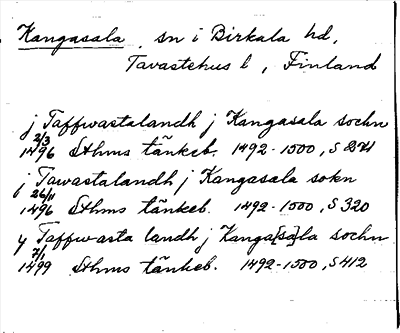 Kangasala, sn i Birkala hd,
Tavastehus l, Finland
j Taffwastalandh j Kangasala sochn
2/3 1496 Sthms tänkeb. 1492-1500, S 274
j Tawastalandh j Kangasala sokn
26/11 1496 Sthms tänkeb. 1492-1500, S 320
y Taffwasta landh j Kanga[sa]la sochn
7/1 1499 Sthms tänkeb. 1492-1500, S 412